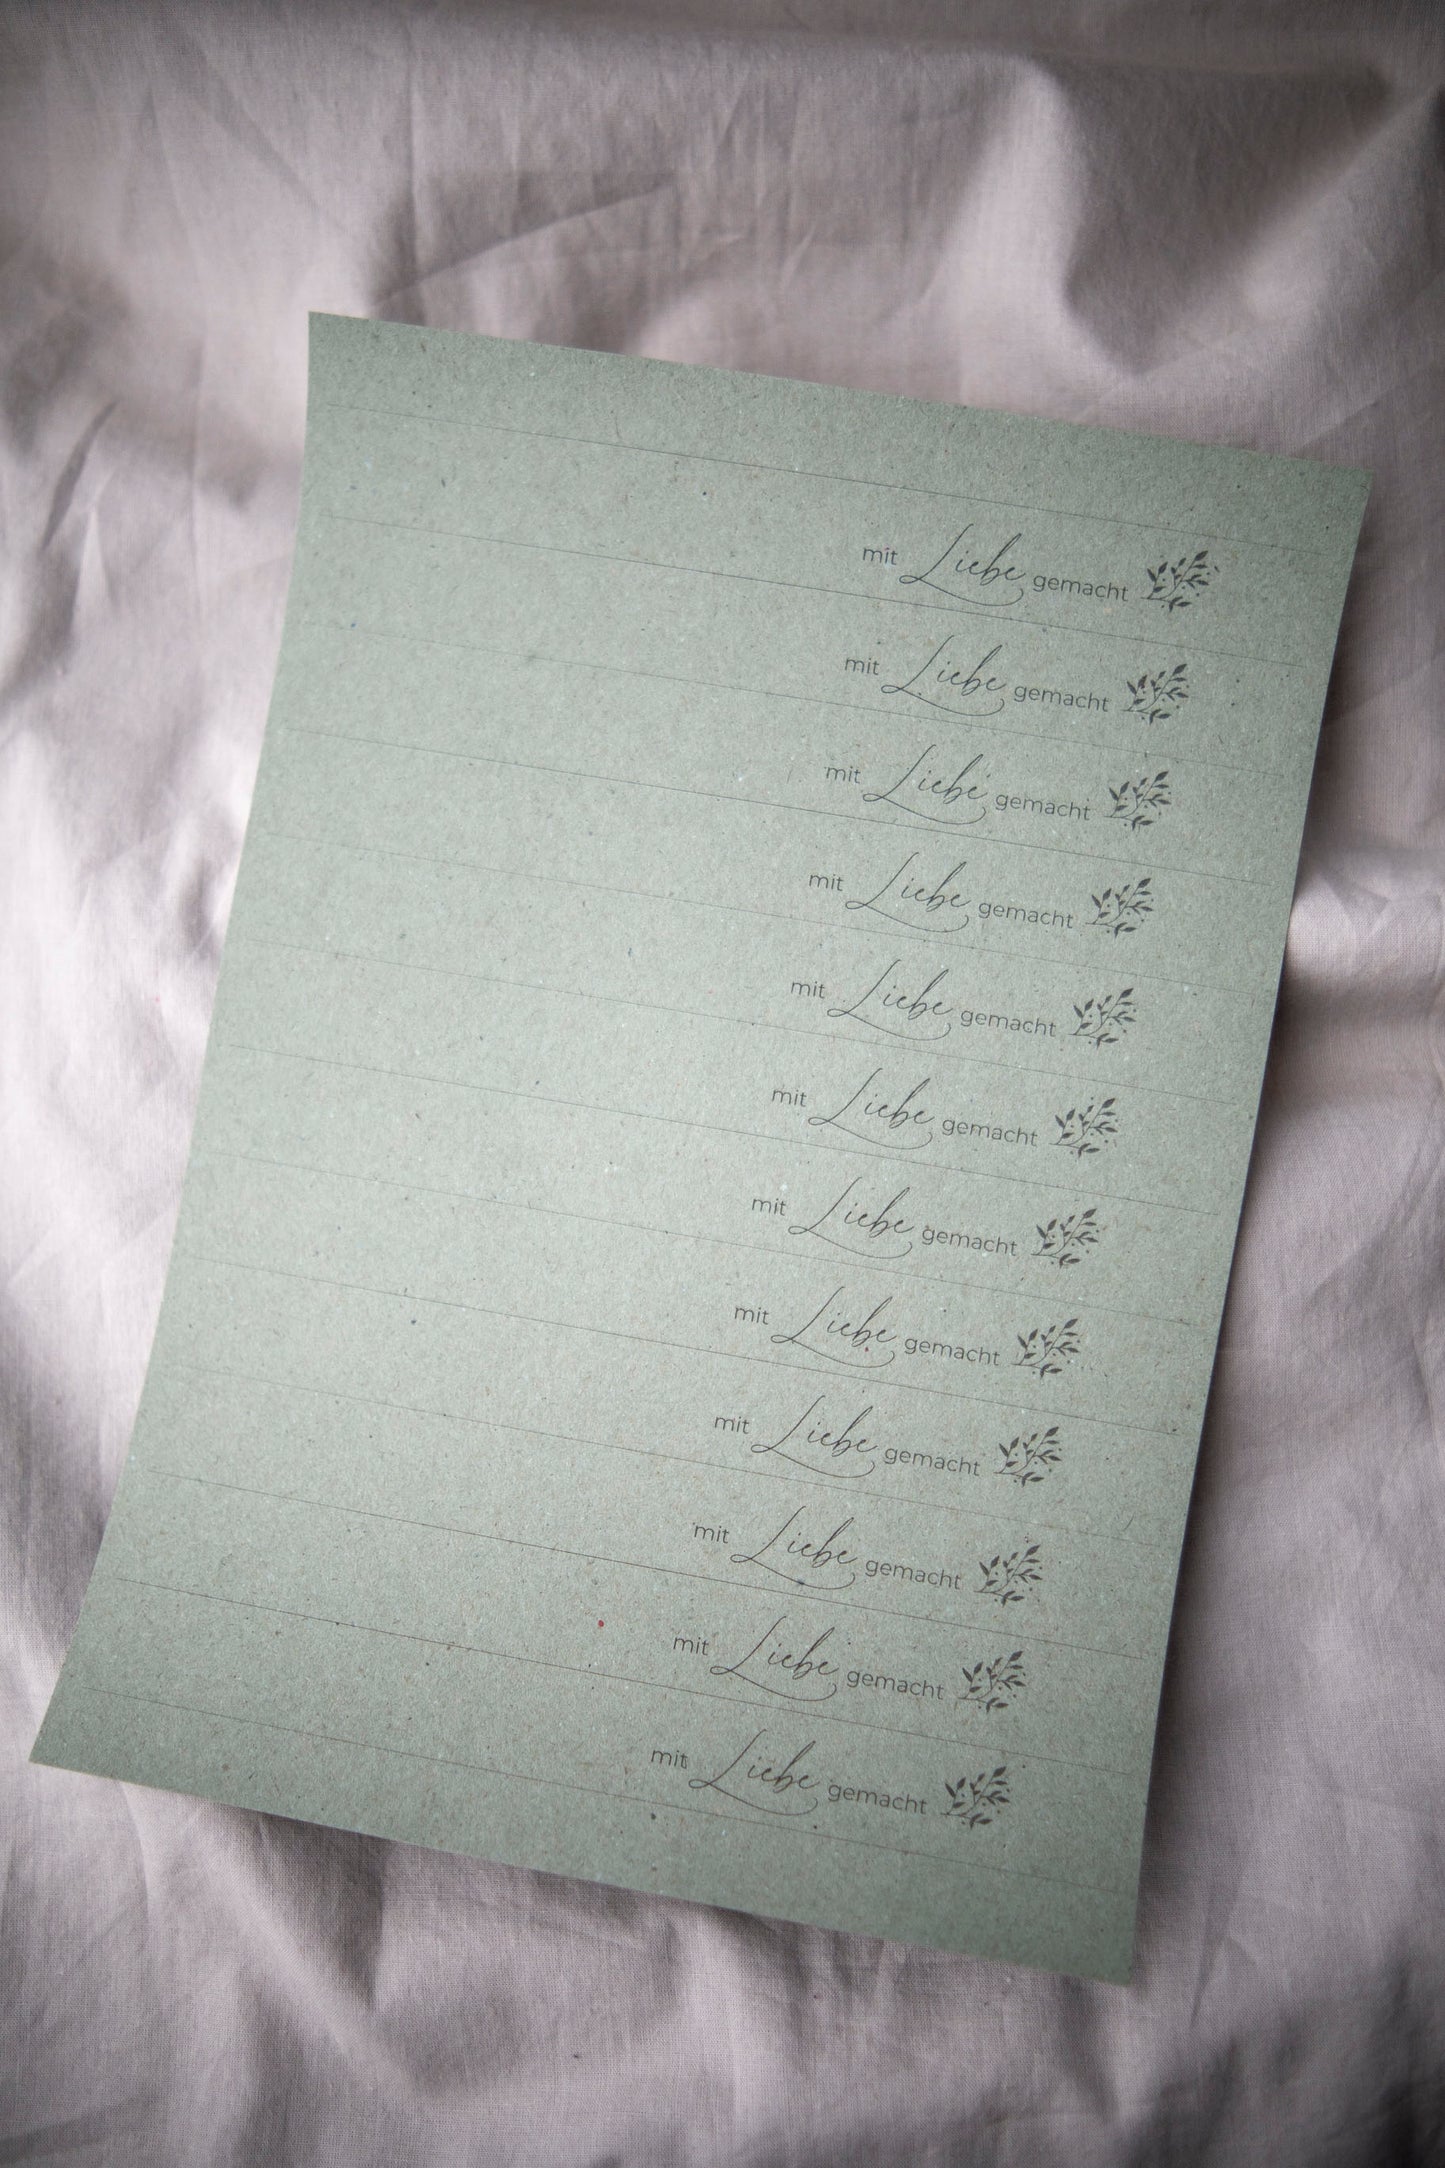 mit Liebe gemacht
mit Liebe gemacht
mit Liebe gemacht
mit Liebe gemacht
mit Liebe gemacht
mit Liebe gemacht
mit Liebe gemacht
mit Liebe gemacht
mit Liebe gemacht
mit Liebe gemacht
mit Liebe gemacht
mit Liebe gemacht